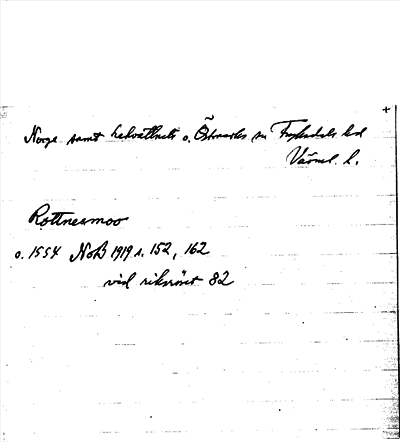 Norge samt Lekvattnets o. Östmarks sn Fryksdals hd
Värml. l.
Rottnesmoo
o. 1554 NoB 1919 s. 152, 162
vid riksröset 82